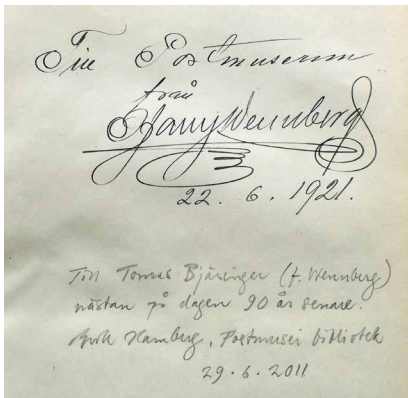 Till Postmuseum
från
Harry Wennberg
22. 6. 1921.
Till Tomas Bjäringer (f. Wennberg)
nästan på dagen 90 år senare.
Hamberg, Postmusei bibliotek
29.6.2011